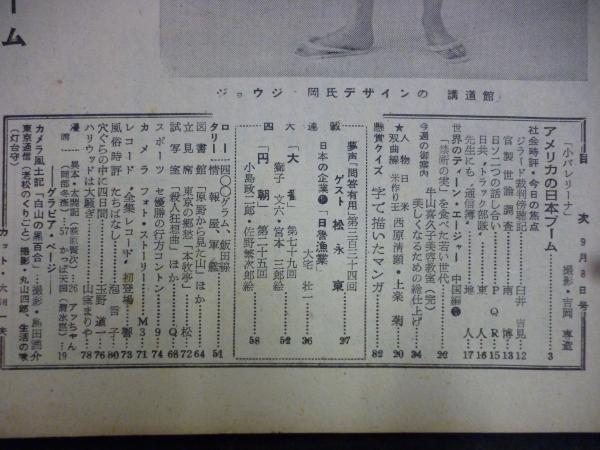 ーム
ジョウジ・岡氏デザインの 講道館
目 次 9月8日号
「小バレリーナ」 撮影・吉岡専造
アメリカの日本ブーム 3
社会時評・今日の焦点
ジラード裁判傍聴記 臼井吉見 12
官製世論調査 南博 13
日ソ二つの話し合い P・Q・R 15
日共・トラック部隊 東人 16
先生にも〝通信簿〟 地人 17
世界のティーン・エージャー 中国編
「禁断の実」を食べた若い世代 22
今週の御案内 牛山喜久子美容教室(完)
美しくなるための総仕上げ 34
★人物日本
★双曲線 米作り王 西原清顕・上楽菊 20
懸賞クイズ 字で描いたマンガ 82
夢声「問答有用」第三百三十四回
ゲスト 松永東 27
日本の企業 「日魯漁業」
大宅壮一 36
大番 第七十九回
獅子文六・宮本三郎絵 52
円朝 第二十五回
小島政二郎・佐野繁次郎絵 58
ロータリー 一四〇〇グラム、飯田線
情報屋、軍艦 51
図書館 「原野から見た山」ほか 64
立見席 東京の郷愁「一本牧亭」 松 72
試写室 「殺人狂想曲」ほか Q 68
スポーツ セ優勝の行方コントン 9
カメラ フォト・ストーリー M 71
レコード 全集レコード・初登場 響 73
風俗時評 たちばなし 泡言子 80
穴ぐらの中に四日間 玉野道一 76
ハリウッドは大騒ぎ 山室まりや 78
漫画 異本・太閤記(荻原賢次)…26 アッちゃん
(岡部冬彦)…57 かっぱ天国(清水崑)…19
―グラビア・ページ―
カメラ風土記「白山の黒百合」 撮影・島田謹介
東京通信(老松のくりごと) 撮影・丸山四郎、生活の歌
(灯台守)
カット・大川一夫